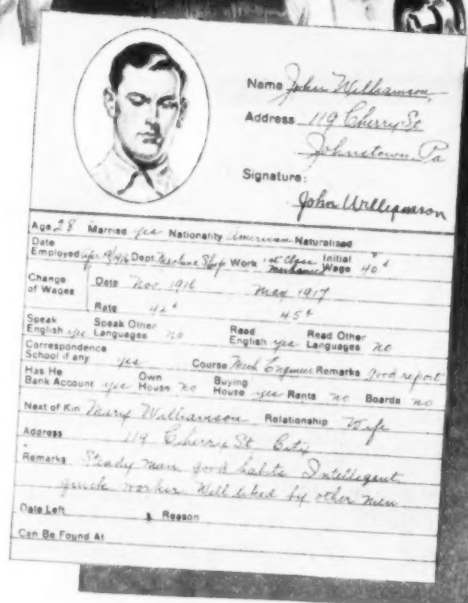 Name John Williamson,
Address 119 Cherry St
Johnstown, Pa
Signature:
John Williamson
Age 28 Married yes Nationality American Naturalised "
Date Employed Apr 19/16 Dept. Machine Shop Work 1st Class Mechanic Initial Wage 40¢
Change of Wages Date Nov. 1916 May 1917
Rate 42¢ 45¢
Speak English yes Speak Other Languages no Read English yes Read Other Languages no
Correspondence School if any yes Course Mech Engineer Remarks Good report
Has He Bank Account yes Own House no Buying House yes Rents no Boards no
Next of Kin Mary Williamson Relationship Wife
Address 119 Cherry St. City
Remarks Steady man good habits Intelligent
quick worker. Well liked by other men
Date Left Reason
Can Be Found At